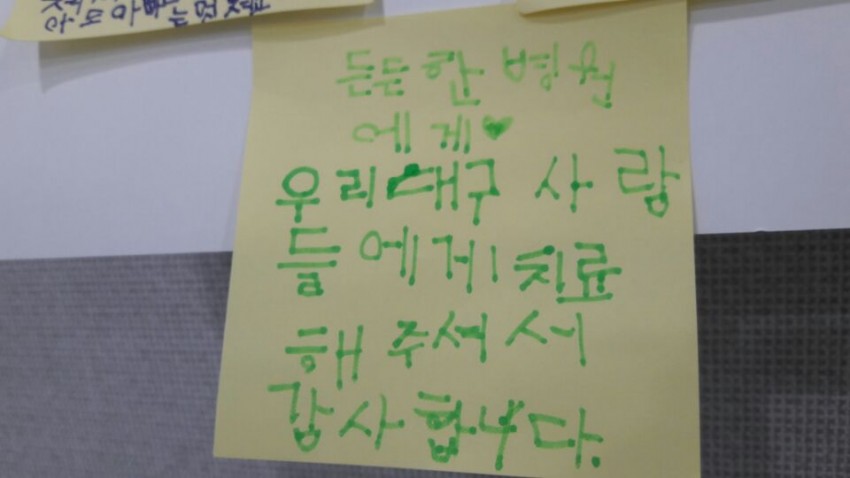 든든한 병원
에게♥
우리대구 사람
들에게 치료
해 주셔서
감사합니다.